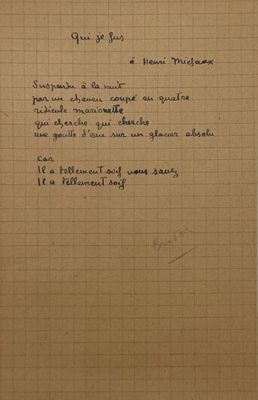 Qui je fus
à Henri Michaux
Suspendu à la nuit
par un cheveu coupé en quatre
ridicule marionette
qui cherche qui cherche
une goutte d'eau sur un glacier absolu
car
Il a tellement soif vous savez
Il a tellement soif